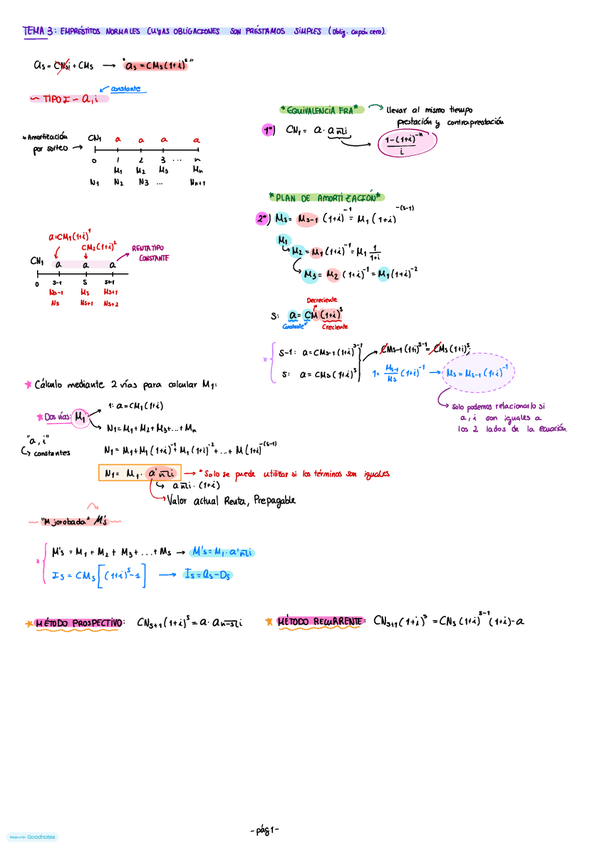 TEMA 3: EMPRÉSTITOS NORMALES CUYAS OBLIGACIONES SON PRÉSTAMOS SIMPLES (oblig. cupón cero).
as = CNsi + CMs → "as = CMs(1+i)^s"
constante
~ TIPO I - a, i
* Amortización por sorteo
CN1 a a a a
0 1 2 3 ... n
M1 M2 M3 Mn
N1 N2 N3 ... Nn+1
*EQUIVALENCIA FRA*
llevar al mismo tiempo
prestación y contraprestación
1º) CN1 = a · a n¬i
1-(1+i)^-n / i
*PLAN DE AMORTIZACIÓN*
2º) Ms = Ms-1 (1+i)^-1 = M1 (1+i)^-(s-1)
M1
M2 = M1 (1+i)^-1 = M1 1/1+i
M3 = M2 (1+i)^-1 = M1 (1+i)^-2
a=CM1(1+i)^1
CM2(1+i)^2
RENTA TIPO
CONSTANTE
CN1 a a a
0 s-1 s s+1
Ms-1 Ms Ms+1
Ns Ns+1 Ns+2
Decreciente
S: a = CM(1+i)^s
Constante Creciente
s-1: a = CMs-1(1+i)^s-1
s: a = CMs(1+i)^s
CMs-1(1+i)^s-1 = CMs(1+i)^s
1 = Ms-1/Ms (1+i)^-1 → Ms = Ms-1(1+i)^-1
solo podemos relacionarlo si
a, i son iguales a
los 2 lados de la ecuación
* Cálculo mediante 2 vías para calcular M1:
1: a=CM1(1+i)
* Dos vías: M1
N1=M1+M2+M3+...+Mn
"a, i"
constantes
N1 = M1+M1(1+i)^-1+M1(1+i)^-2+...+M(1+i)^-(s-1)
N1 = M1 · a¨ n¬i → * Solo se puede utilizar si los términos son iguales
a n¬i · (1+i)
Valor actual Renta, Prepagable
~ "M jorobada" M's
M's = M1 + M2 + M3 + ... + Ms → M's = M1 · a¨ n¬i
Is = CMs[(1+i)^s-1] → Is = as - Ds
* MÉTODO PROSPECTIVO: CNs+1(1+i)^s = a · a n-s¬i
* MÉTODO RECURRENTE: CNs+1(1+i)^s = CNs(1+i)^s-1 (1+i)-a
-pág 1-
Goodnotes